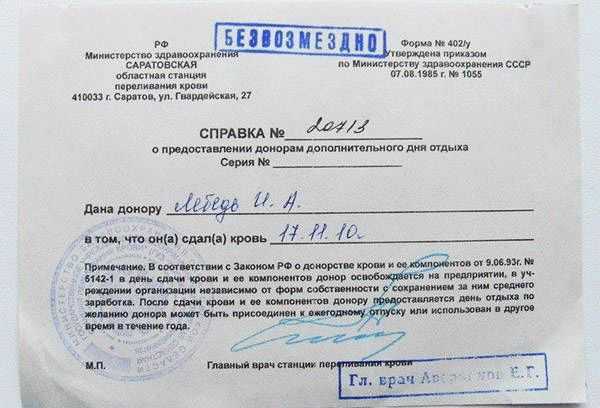 БЕЗВОЗМЕЗДНО
РФ
Министерство здравоохранения
САРАТОВСКАЯ
областная станция
переливания крови
410033 г. Саратов, ул. Гвардейская, 27
Форма № 402/у
Утверждена приказом
по Министерству здравоохранения СССР
07.08.1985 г. № 1055
СПРАВКА № 20713
о предоставлении донорам дополнительного дня отдыха
Серия №
Дана донору Лебедь И. А.
в том, что он(а) сдал(а) кровь 17.11.10г.
Примечание. В соответствии с Законом РФ о донорстве крови и ее компонентов от 9.06.93г. №
5142-1 в день сдачи крови и ее компонентов донор освобождается на предприятии, в уч-
реждении организации независимо от форм собственности с сохранением за ним среднего
заработка. После сдачи крови и ее компонентов донору предоставляется день отдыха по
желанию донора может быть присоединен к ежегодному отпуску или использован в другое
время в течение года.
М.П.
Главный врач станции переливания крови
Гл. врач Е.Г.